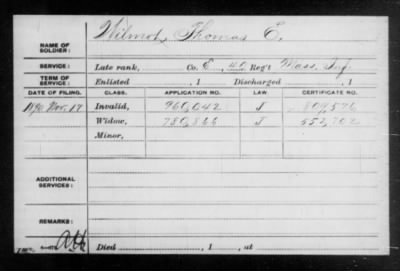 NAME OF SOLDIER: Wilmot, Thomas E.
SERVICE: Late rank, Co. E, 40 Reg't Mass. Inf.
TERM OF SERVICE: Enlisted , 1 Discharged , 1
DATE OF FILING. CLASS. APPLICATION NO. LAW. CERTIFICATE NO.
1890 Nov. 17 Invalid, 960,042 J
Widow, 780,866 J 552,702
Minor,
ADDITIONAL SERVICES:
REMARKS:
Died , 1 , at